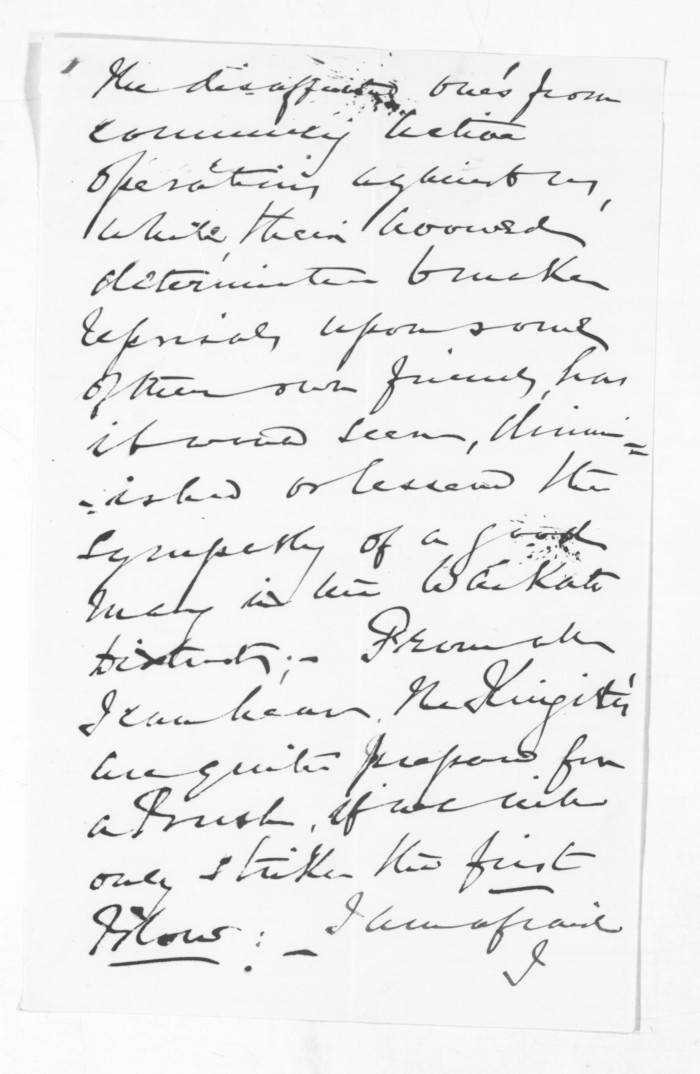 the disaffected one's from
commencing active
operations against us,
while, their avowed
determination to make
reprisals upon some
of their own friends, has
it would seem, dimin=
=ished or lessened the
sympathy of a good
many in the Waikato
District; – From all
I can hear, the Kingite's
are quite prepared for
a Brush, if we will
only strike the first
Blow: – I am afraid
I